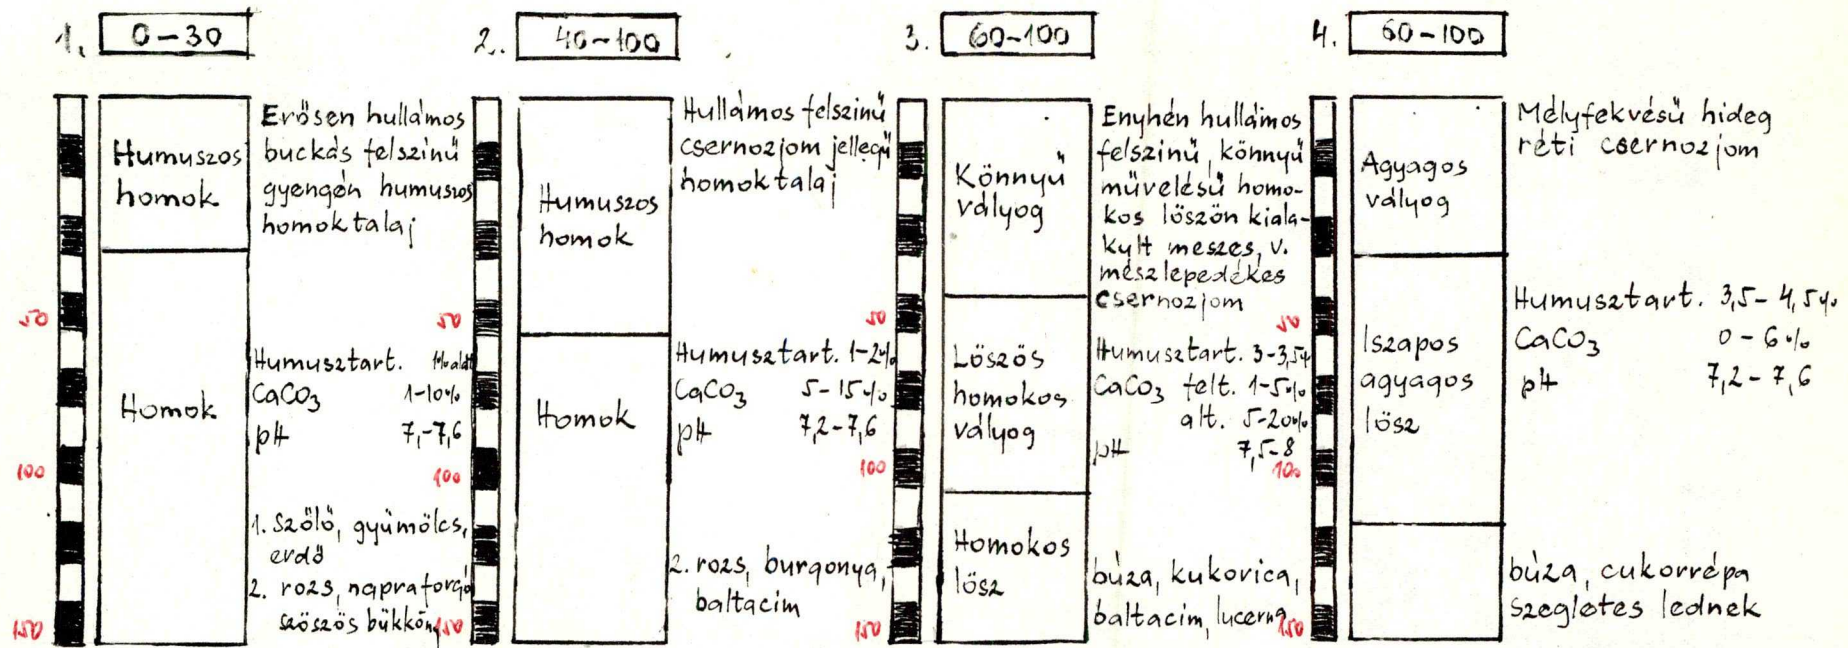 1. 0-30
Humuszos
homok
Homok
50
100
150
Erősen hullámos
buckás felszinű
gyengén humuszos
homoktalaj
Humusztart. 1% alatt
CaCO3 1-10%
pH 7,-7,6
1. Szőlő, gyümölcs,
erdő
2. rozs, napraforgó
szöszös bükköny
2. 40-100
Humuszos
homok
Homok
50
100
150
Hullámos felszinű
csernozjom jellegű
homoktalaj
Humusztart. 1-2%
CaCO3 5-15%
pH 7,2-7,6
2. rozs, burgonya,
baltacim
3. 60-100
Könnyű
vályog
Löszös
homokos
vályog
Homokos
lösz
50
100
150
Enyhén hullámos
felszinű, könnyű
művelésű homo-
kos löszön kiala-
kult meszes, v.
mészlepedékes
csernozjom
Humusztart. 3-3,5%
CaCO3 felt. 1-5%
alt. 5-20%
pH 7,5-8
búza, kukorica,
baltacim, lucerna
4. 60-100
Agyagos
vályog
Iszapos
agyagos
lösz
50
100
150
Mélyfekvésű hideg
réti csernozjom
Humusztart. 3,5-4,5%
CaCO3 0-6%
pH 7,2-7,6
búza, cukorrépa
szegletes lednek